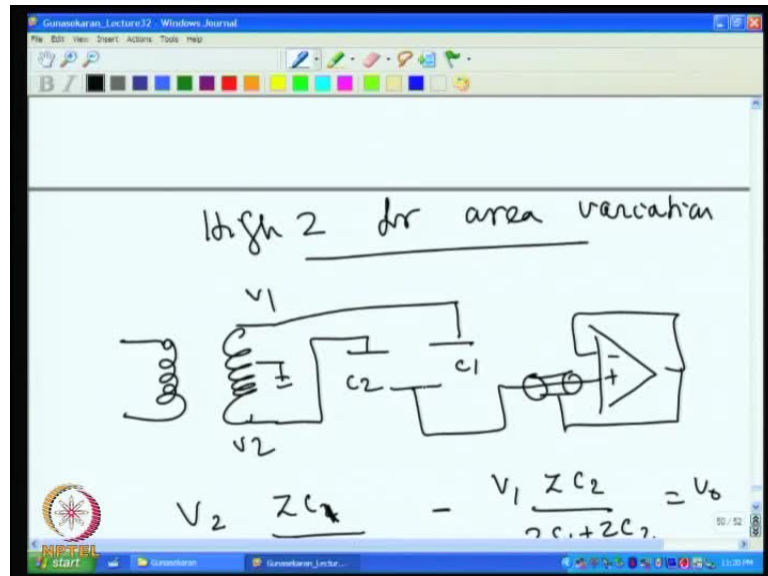 Gunasekaran_Lecture32 - Windows Journal
File Edit View Insert Actions Tools Help
B I
High Z for area variation
V1
C1
C2
V2
-
+
V2 ZC - V1 ZC2 = V0
ZC1+ZC2
50 / 52
NPTEL
start Gunasekaran Gunasekaran_Lectur... 11:20 PM